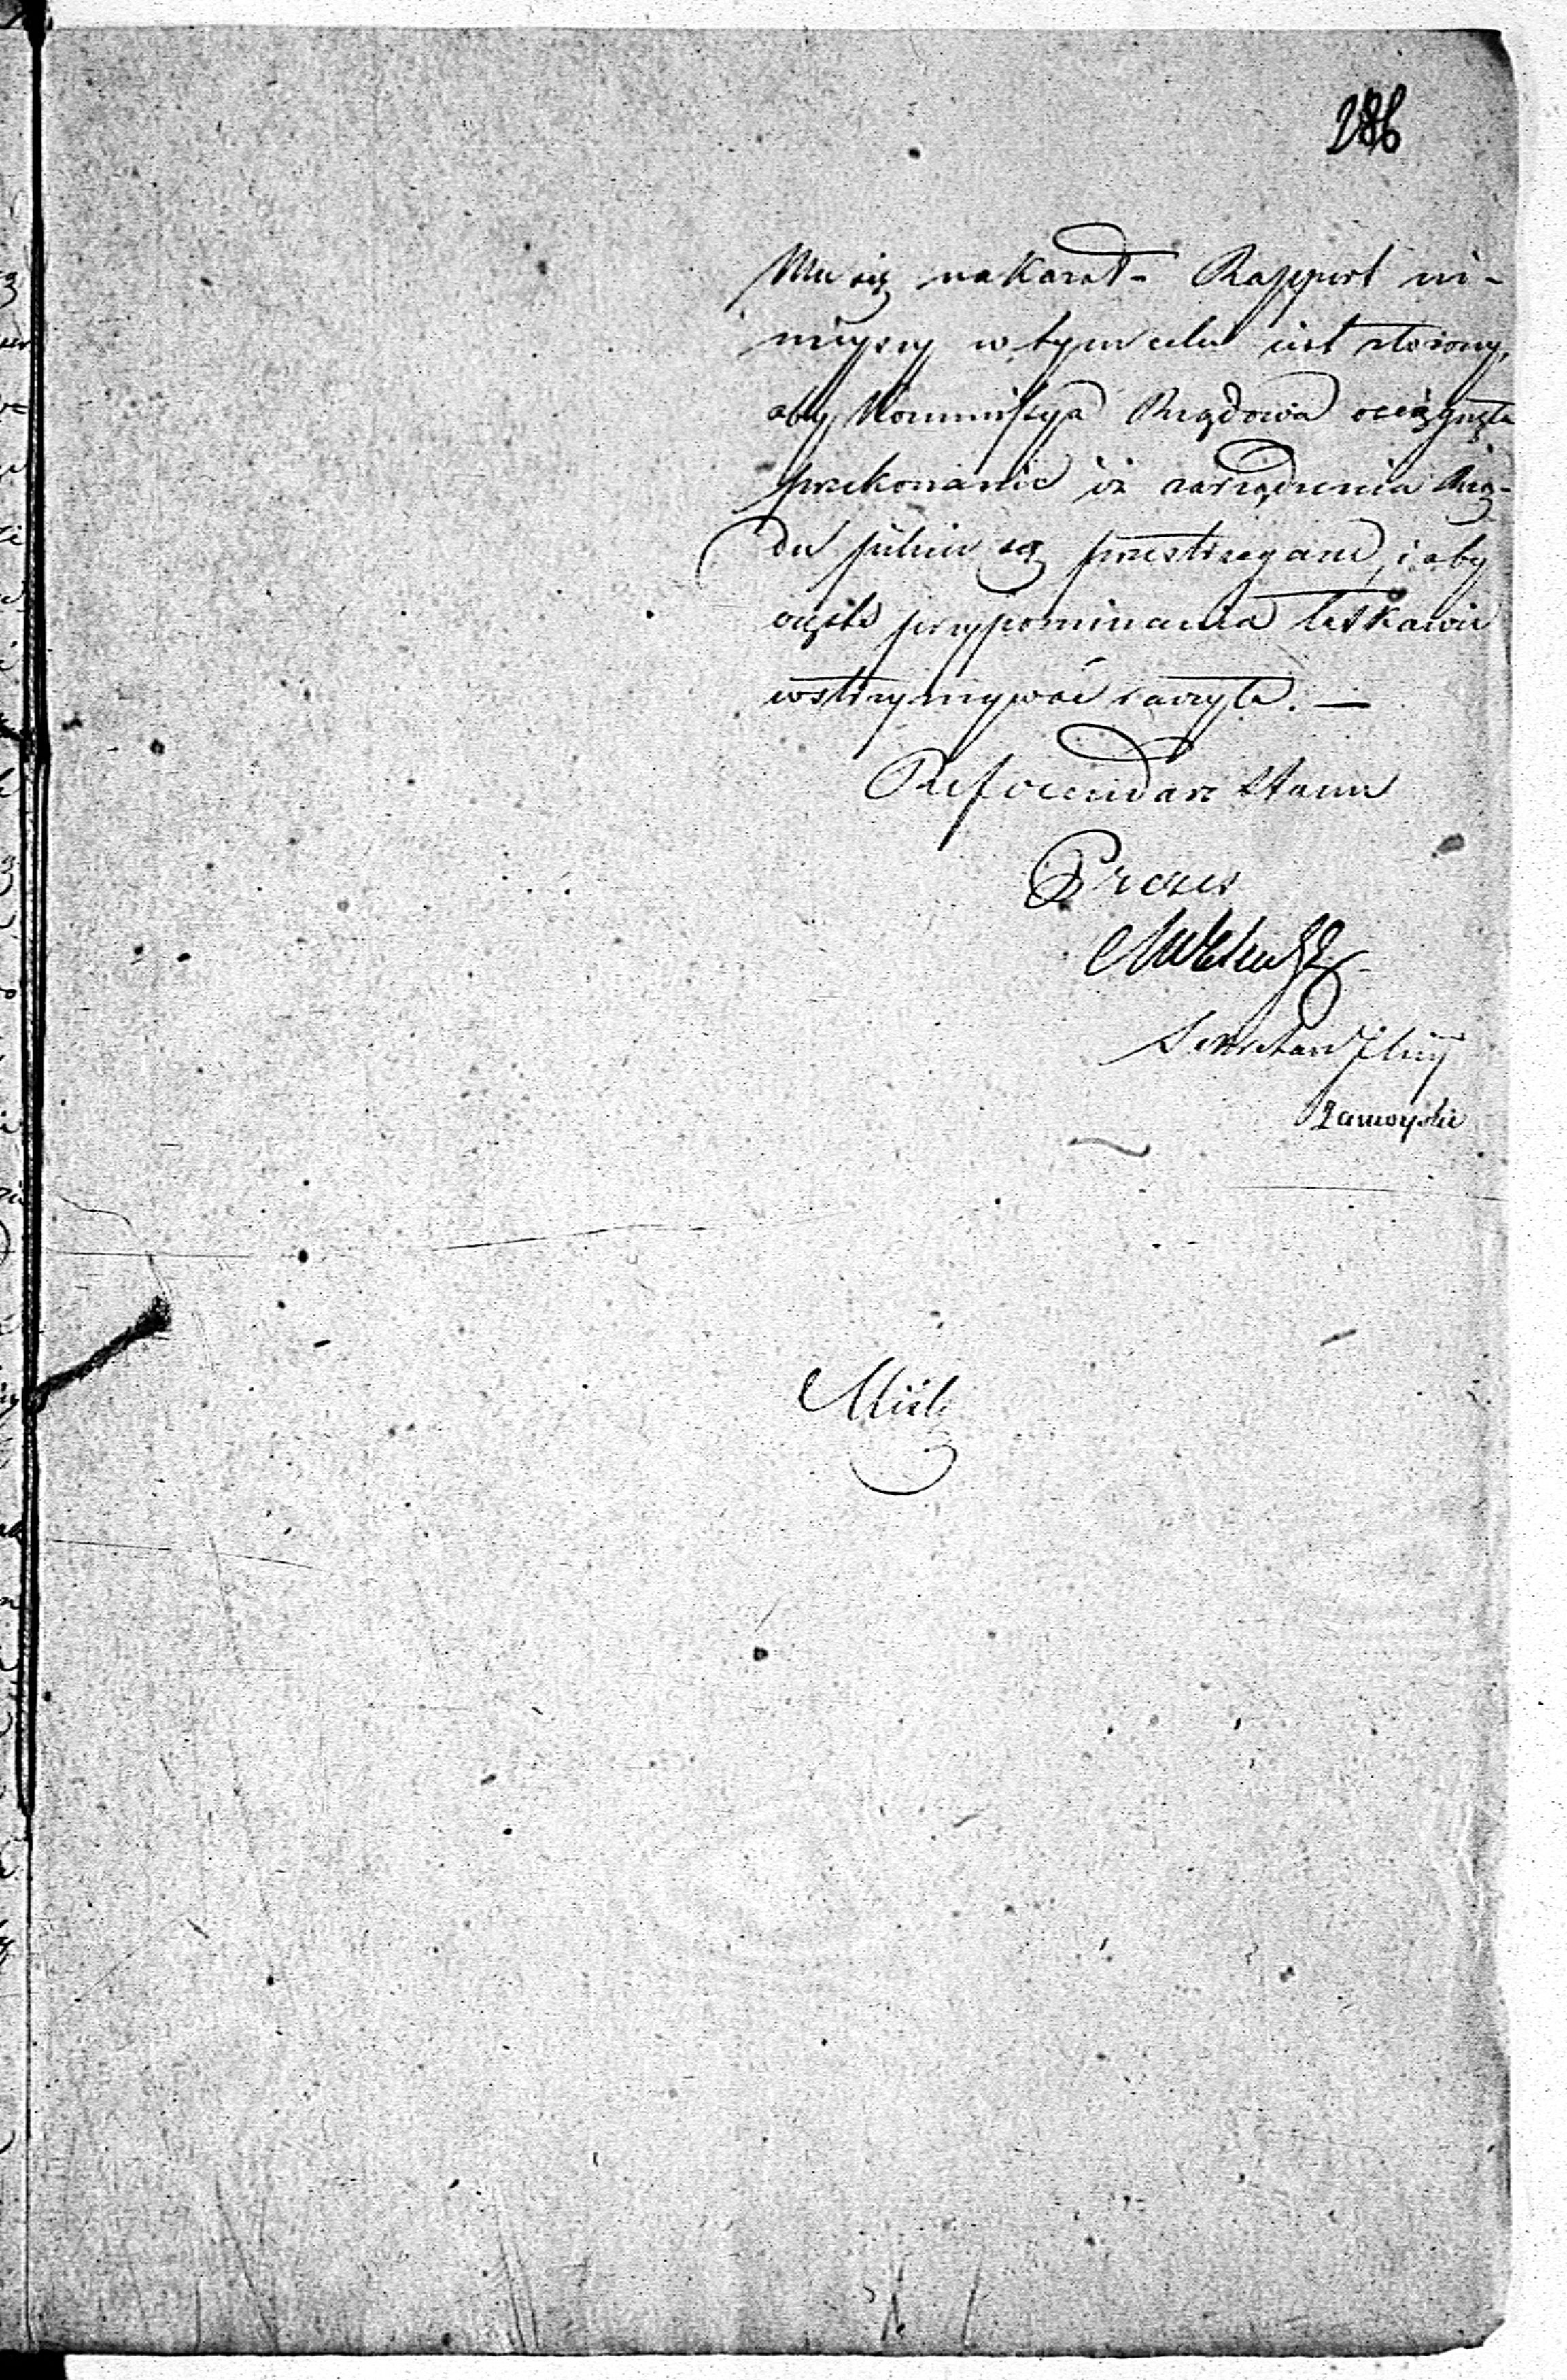 286
Mu się nakazał. Rapport ni-
nieyszy w tym celu iest złożony,
aby Kommissya Rządowa osiągnęła
przekonanie iż zarządzenia Rzą-
du pilnie są przestrzegane, i aby
częste przypominania łaskawie
wstrzymywać raczyła. —
Referendarz Stanu
Prezes
Sekretarz Jlny
Zamoyski